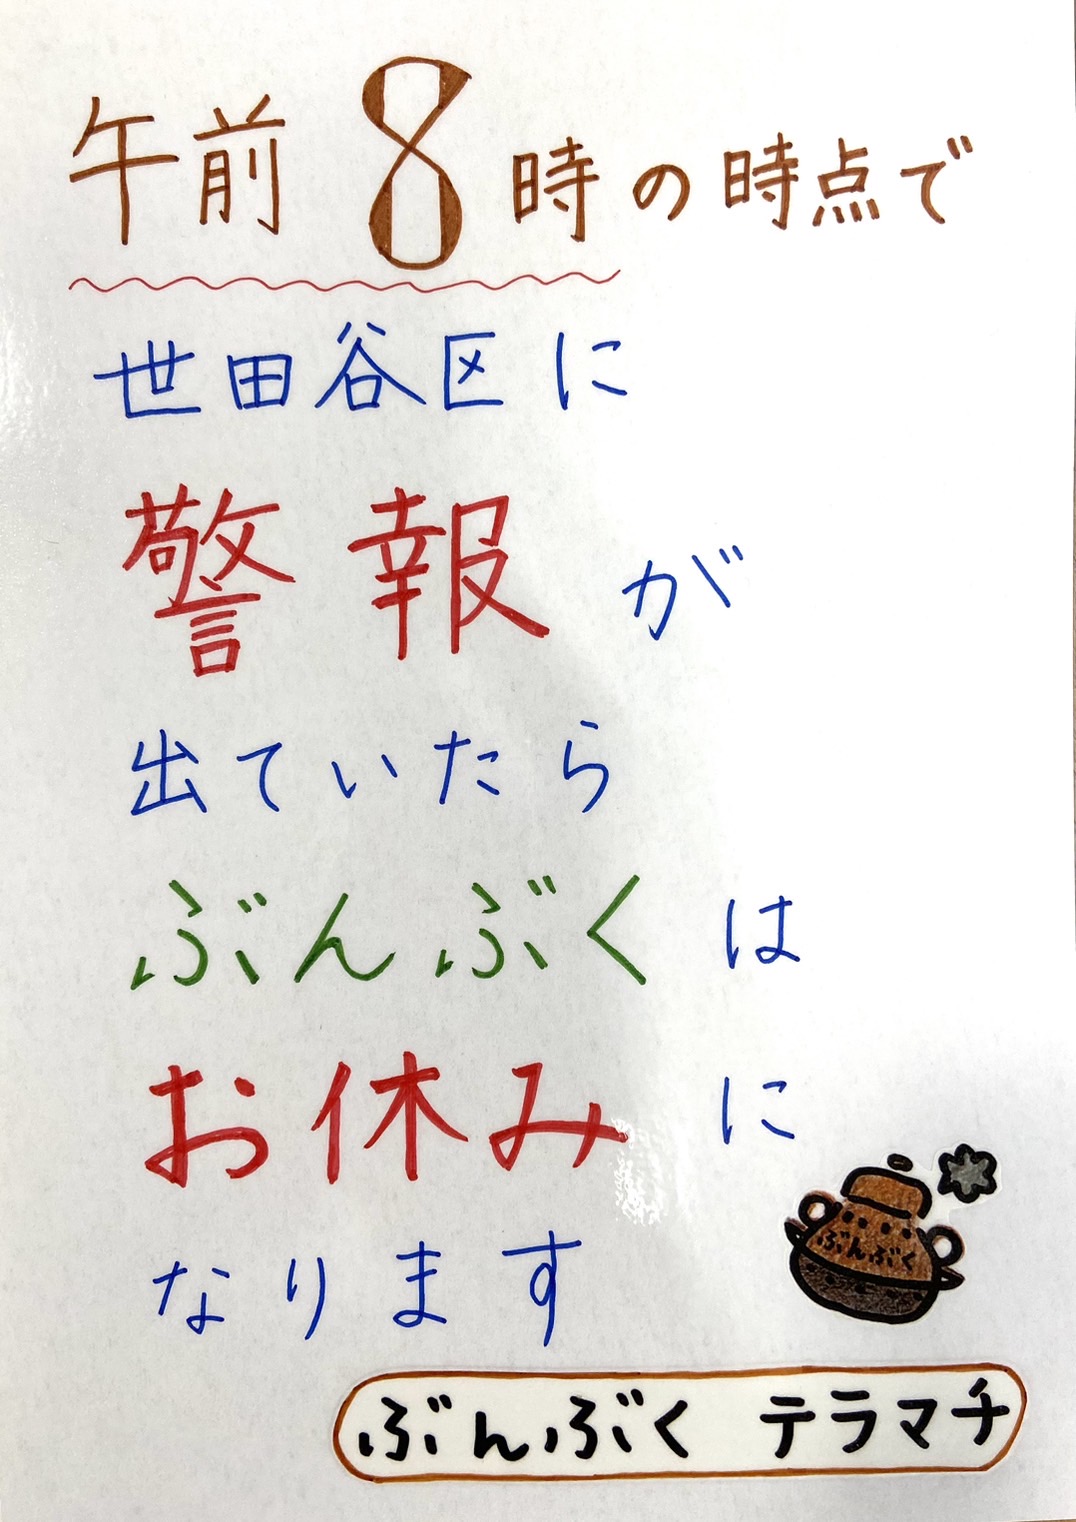 午前8時の時点で
世田谷区に
警報が
出ていたら
ぶんぶくは
お休みに
なります
ぶんぶく
ぶんぶく テラマチ